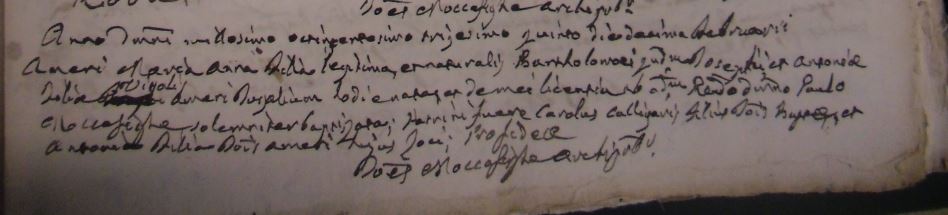 Joes Moccafighe archipbr
Anno Domini millesimo octingentesimo trigesimo quinto die decima Februarii
Ameri Maria Anna Filia legitima, et naturalis Bartholomei qdm Josephi et Antonia
Filia Ameri jugalium hodie nata, et de mei licentia ab Rendo dmno Paulo
Moccafighe solemniter baptizata; Patrini fuere Carolus Calligaris filius et
Antonia Filia Jois Ameri hujus loci, Pro fide
Joes Moccafighe Archipbr